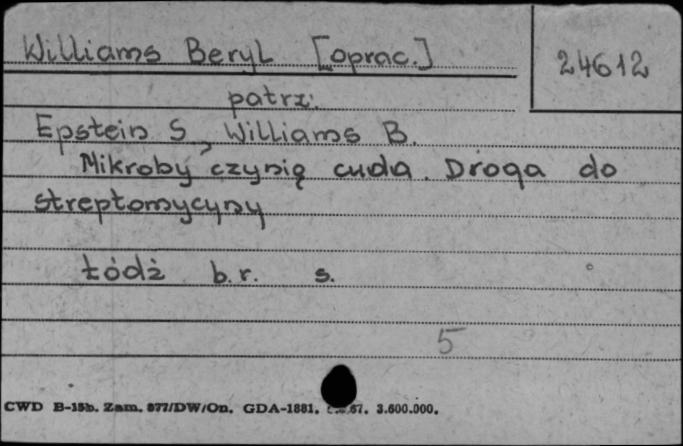 Williams Beryl [oprac.]
24612
patrz:
Epstein S., Williams B.
Mikroby czynią cuda. Droga do
streptomycyny
Łódź b.r. s.
5
CWD B-15b. Zam. 877/DW/On. GDA-1881. 67. 3.600.000.